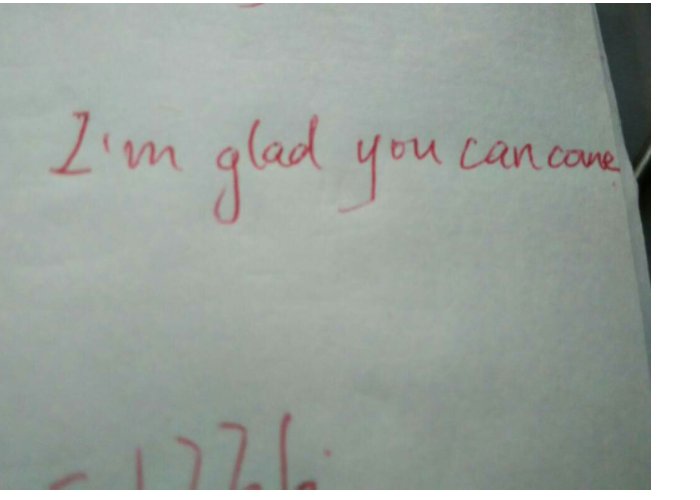 I'm glad you can come